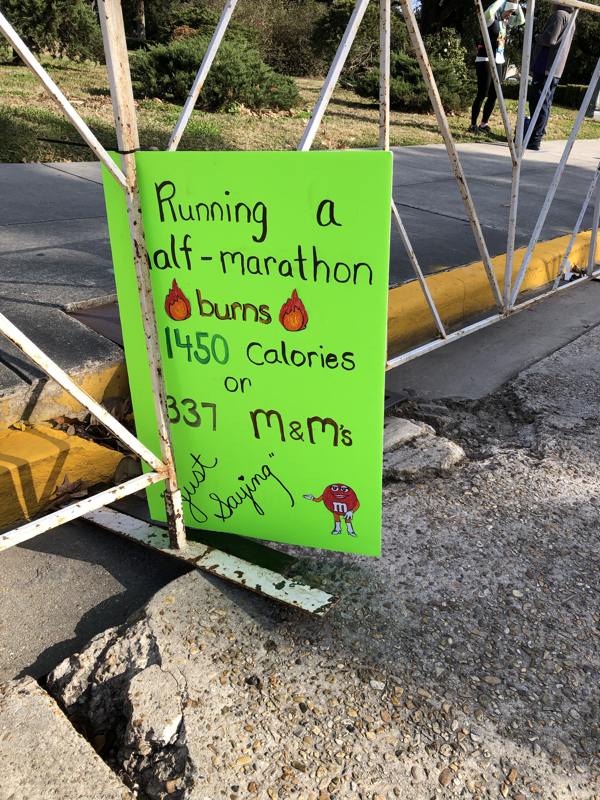 Running a
alf-marathon
burns
1450 Calories
or
337 M&M's
Just
Saying"
m